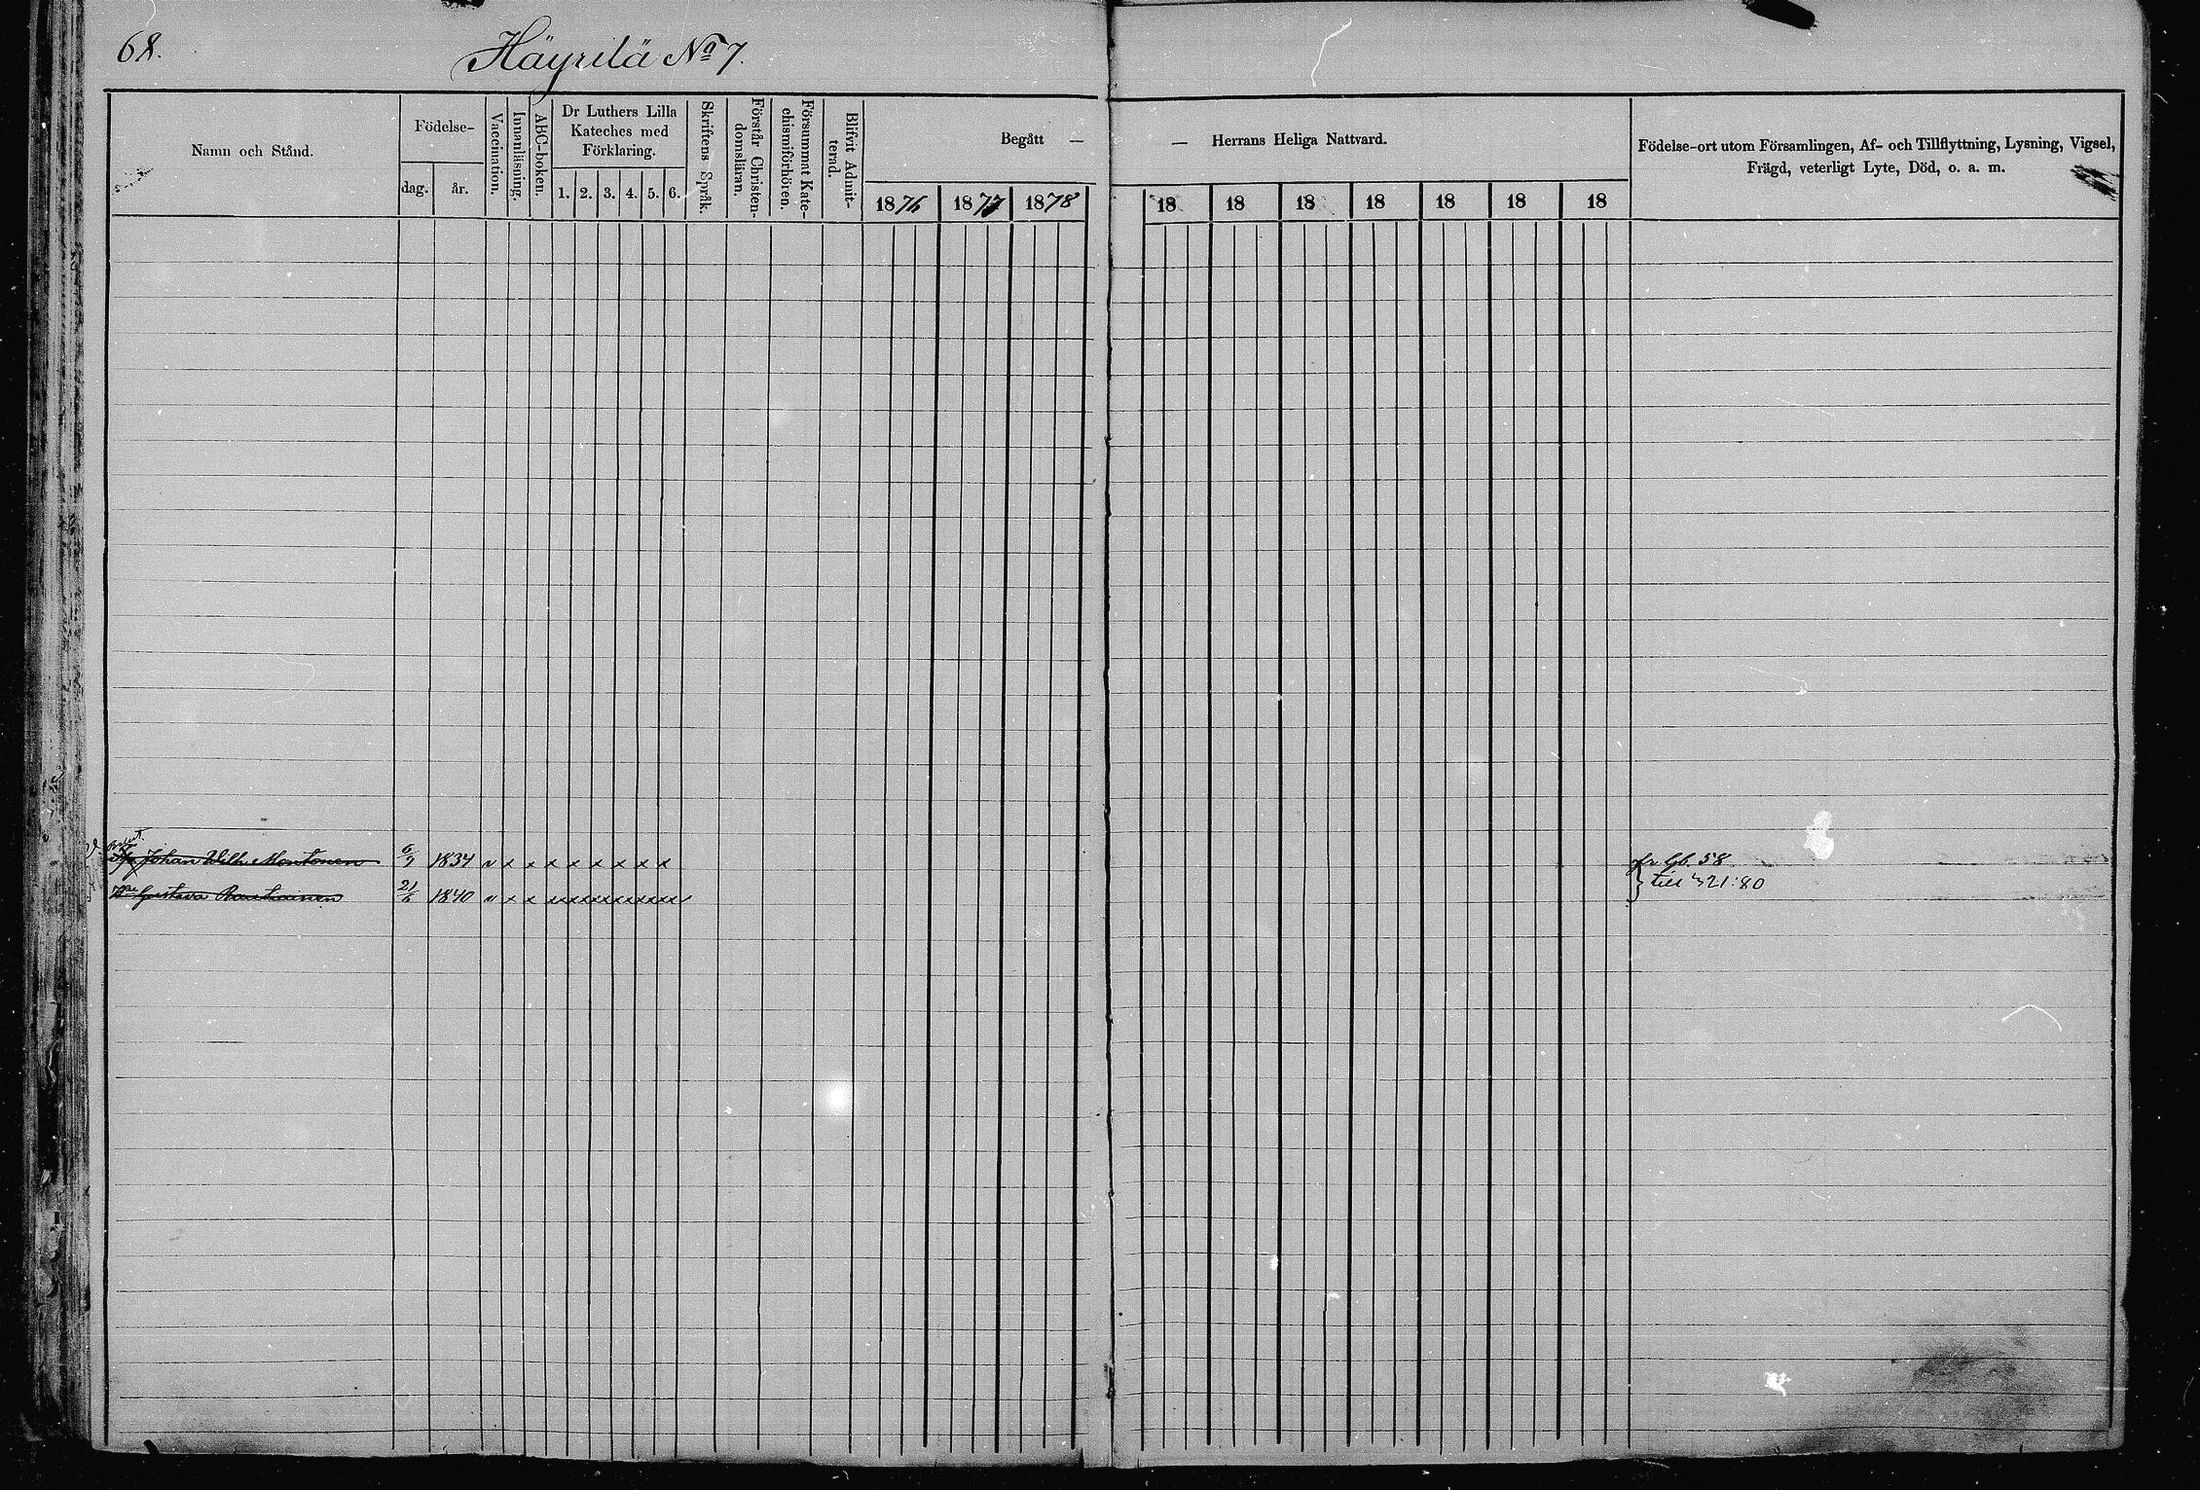 68.
Häyrilä No 7.
Namn och Stånd.
Födelse-
dag.
år.
Vaccination.
Innanläsning.
ABC-boken.
Dr Luthers Lilla
Kateches med
Förklaring.
1. 2. 3. 4. 5. 6.
Skriftens Språk.
Förstår Christen-
domsläran.
Försummat Kate-
chismiförhören.
Blifvit Admit-
terad.
Begått —
1876 1877 1878
— Herrans Heliga Nattvard.
18 18 18 18 18 18 18
Födelse-ort utom Församlingen, Af- och Tillflyttning, Lysning, Vigsel,
Frägd, veterligt Lyte, Död, o. a. m.
Johan Wilh. Montonen 6/9 1834 v x x x x x x x x
fr 58
till 21:80
Gustava 21/6 1840 v x x x x x x x x x x x